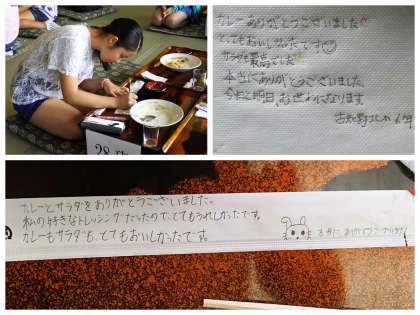 カレーありがとうございました
とてもおいしかったです
サラダも最高でした
本当にありがとうございました
今日と明日、おせわになります
カレーとサラダをありがとうございました。
私の好きなドレッシングだったのでとてもうれしかったです。
カレーもサラダも、とてもおいしかったです。
ありがとうございました
28